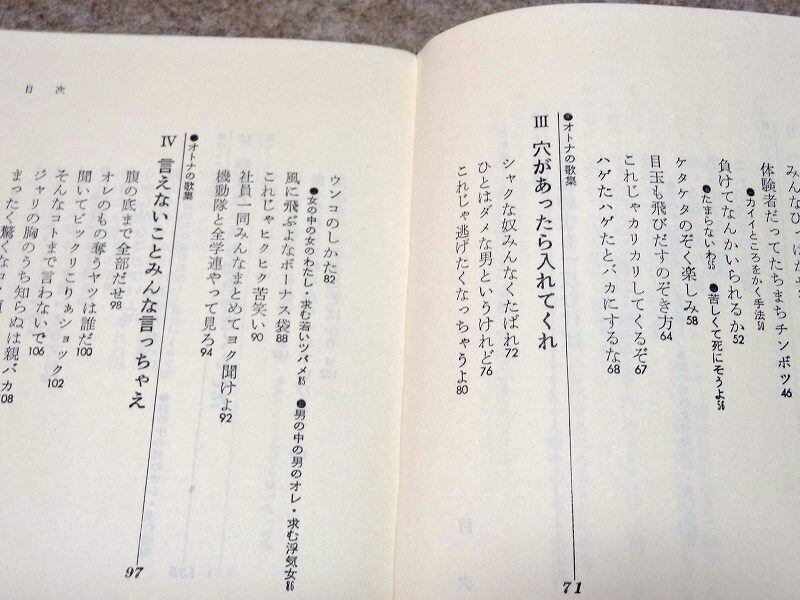 みんなひっ
体験者だってたちまちチンボツ46
●カイイところをかく手法50
負けてなんかいられるか52
●たまらないわ55 ●苦しくて死にそうよ56
ケタケタのぞく楽しみ58
目玉も飛びだすのぞき方64
これじゃカリカリしてくるぞ67
ハゲたハゲたとバカにするな68
●オトナの歌集
III 穴があったら入れてくれ
71
シャクな奴みんなくたばれ72
ひとはダメな男というけれど76
これじゃ逃げたくなっちゃうよ80
目 次
ウンコのしかた82
●女の中の女のわたし・求む若いツバメ85 ●男の中の男のオレ・求む浮気女86
風に飛ぶよなボーナス袋88
これじゃヒクヒク苦笑い90
社員一同みんなまとめてヨク聞けよ92
機動隊と全学連やって見ろ94
●オトナの歌集
IV 言えないことみんな言っちゃえ
97
腹の底まで全部だせ98
オレのもの奪うヤツは誰だ100
聞いてビックリこりゃショック102
そんなコトまで言わないで106
ジャリの胸のうち知らぬは親バカ108
まったく驚くな